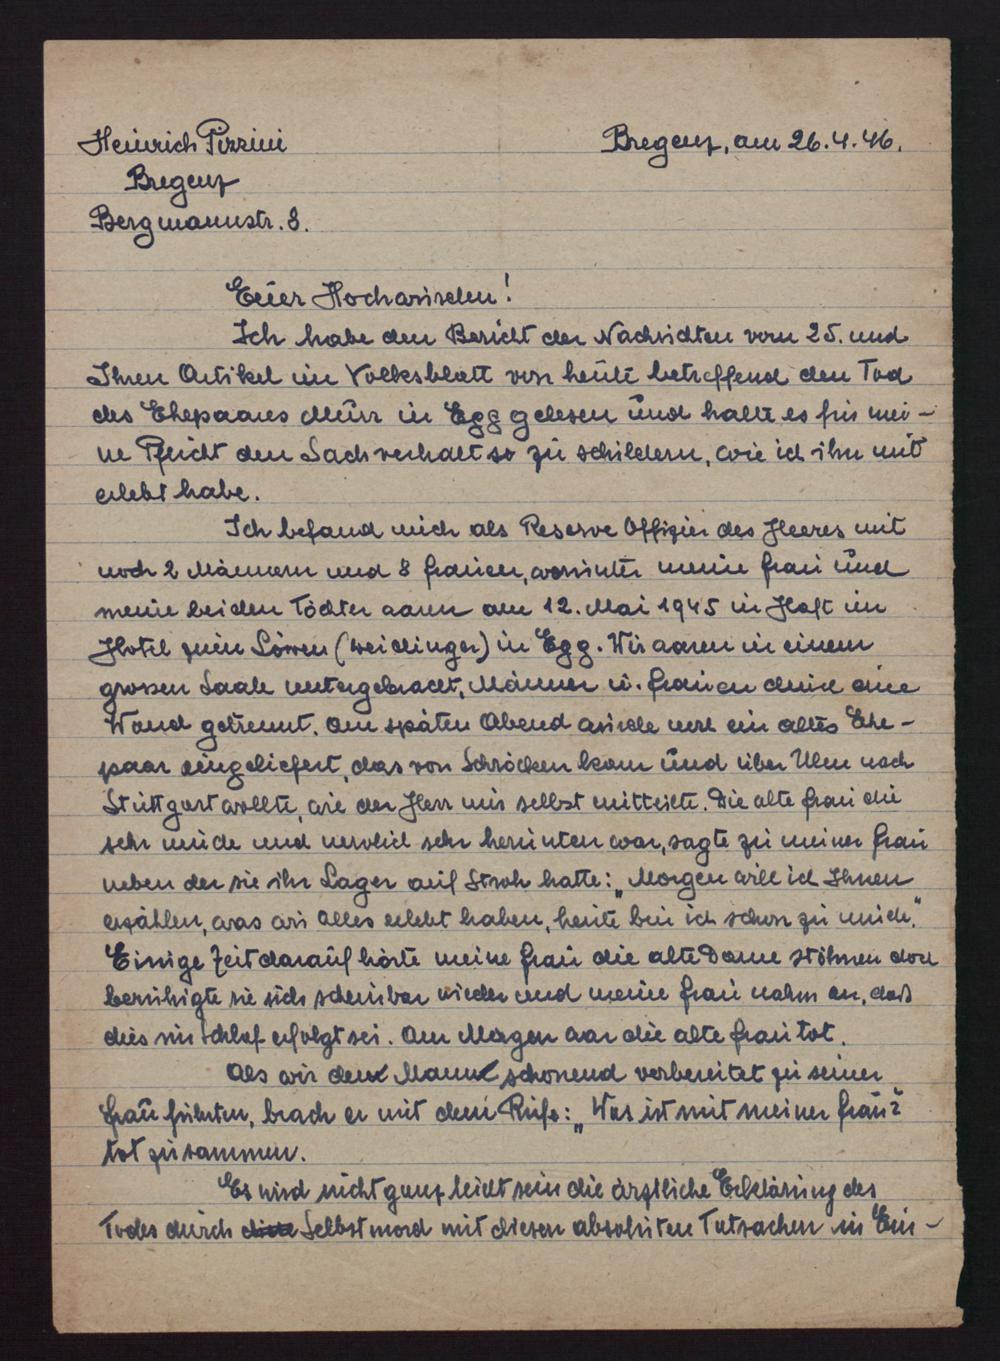 Heinrich Pizzini
Bregenz, am 26.4.46.
Bregenz
Bergmannstr. 8.
Euer Hochwürden!
Ich habe den Bericht der Nachrichten vom 25. und
Ihren Artikel im Volksblatt von heute betreffend den Tod
des Ehepaares in Egg gelesen und halte es für mei-
ne Pflicht den Sachverhalt so zu schildern, wie ich ihn mit
erlebt habe.
Ich befand mich als Reserve Offizier des Heeres mit
noch 2 Männern und 8 Frauen, worunter meine Frau und
meine beiden Töchter waren am 12. Mai 1945 in Haft im
Hotel zum Löwen (Weidinger) in Egg. Wir waren in einem
grossen Saale untergebracht, Männer u. Frauen durch eine
Wand getrennt. Am späten Abend wurde noch ein altes Ehe-
paar eingeliefert, das von Schröcken kam und über Ulm nach
Stuttgart wollte, wie der Herr mir selbst mitteilte. Die alte Frau die
sehr müde und nervlich sehr herunten war, sagte zu meiner Frau
neben der sie ihr Lager auf Stroh hatte: „Morgen will ich Ihnen
erzählen, was wir alles erlebt haben, heute bin ich schon zu müde."
Einige Zeit darauf hörte meine Frau die alte Dame stöhnen doch
beruhigte sie sich scheinbar wieder und meine Frau nahm an, daß
dies im Schlaf erfolgt sei. Am Morgen war die alte Frau tot.
Als wir den Mann schonend vorbereitet zu seiner
Frau führten, brach er mit dem Rufe: „Was ist mit meiner Frau?"
tot zusammen.
Es wird nicht ganz leicht sein die ärztliche Erklärung des
Todes durch Selbstmord mit diesen absoluten Tatsachen in Ein-